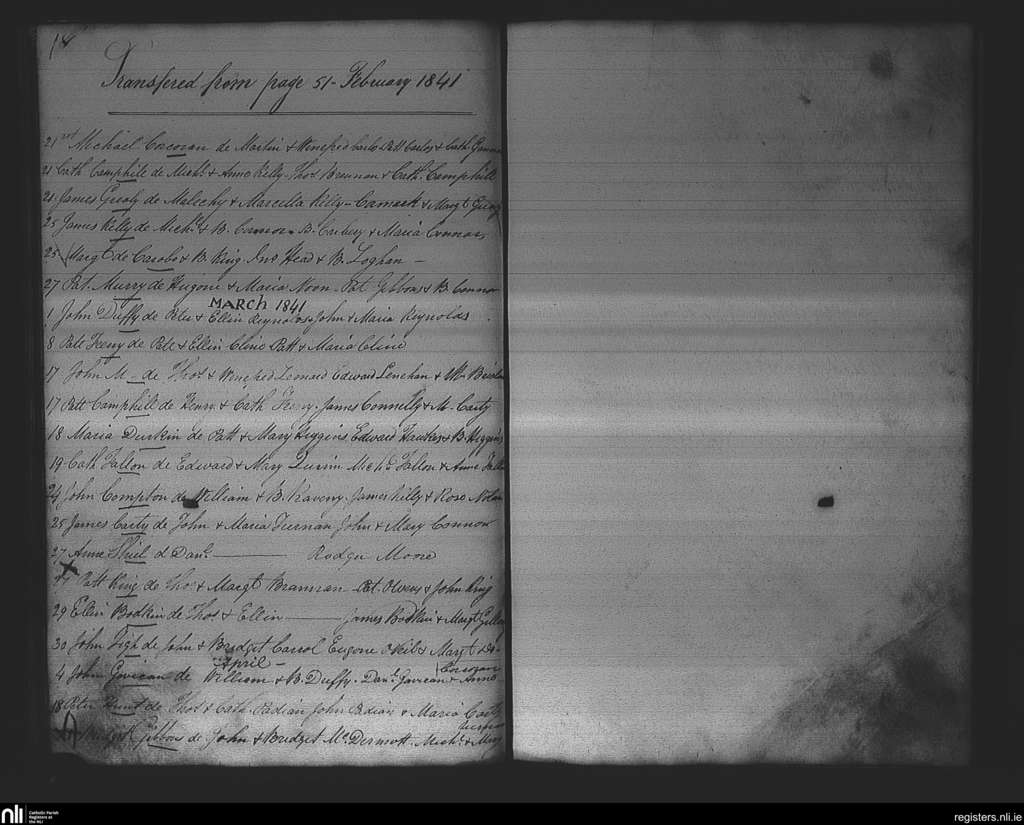 18
Transfered from page 51 - February 1841
21st Michael Corcoran de Martin & Winefred Patt & Cath
21 Cath Camphill de Michl & Anne Kelly - Thos Brennan & Cath. Camphill
21 James de Malechy & Marcella Kelly - & Margt
25 James Kelly de Michl & B. Connor B. & Maria Connor
25 Margt de & B. King Jno Head & B. Loghan -
27 Pat. Murry de & Maria Noon - Pat Gibbons & B. Connor
MARCH 1841
1 John Duffy de Peter & Ellin Reynolds John & Maria Reynolds
8 Patt Feeny de Patt & Ellin Cline Patt & Maria Cline
17 John M - de Thos & Winefred Leonard Edward Lenehan & M.
17 Patt Camphill de Henry & Cath Feeny. James Connelly & M. Carty
18 Maria Durkin de Patt & Mary Higgins Edward Hawkes & B. Higgins
19 Cath Fallon de Edward & Mary Quinn Michl Fallon & Anne
24 John Compton de William & B. Raveny James Kelly & Rose Nolan
25 James Carty de John & Maria Tiernan John & Mary Connor
27 Anne Shiel d Danl Rodger Moore
X Patt King de Thos & Margt Brannan - Pat. Owens & John King
29 Ellin Bodkin de Thos & Ellin James Bodkin & Margt
30 John de John & Bridget Carrol Eugene ONeil & Margt
April -
4 John Gavican de William & B. Duffy. Danl. Gavican & Anne Corcoran
18 Peter Hunt de Thos & Cath. Padian John Padian & Maria
Gibbons de John & Bridget Mc.Dermott. Michl. & Mary
nli Catholic Parish Registers at the NLI
registers.nli.ie